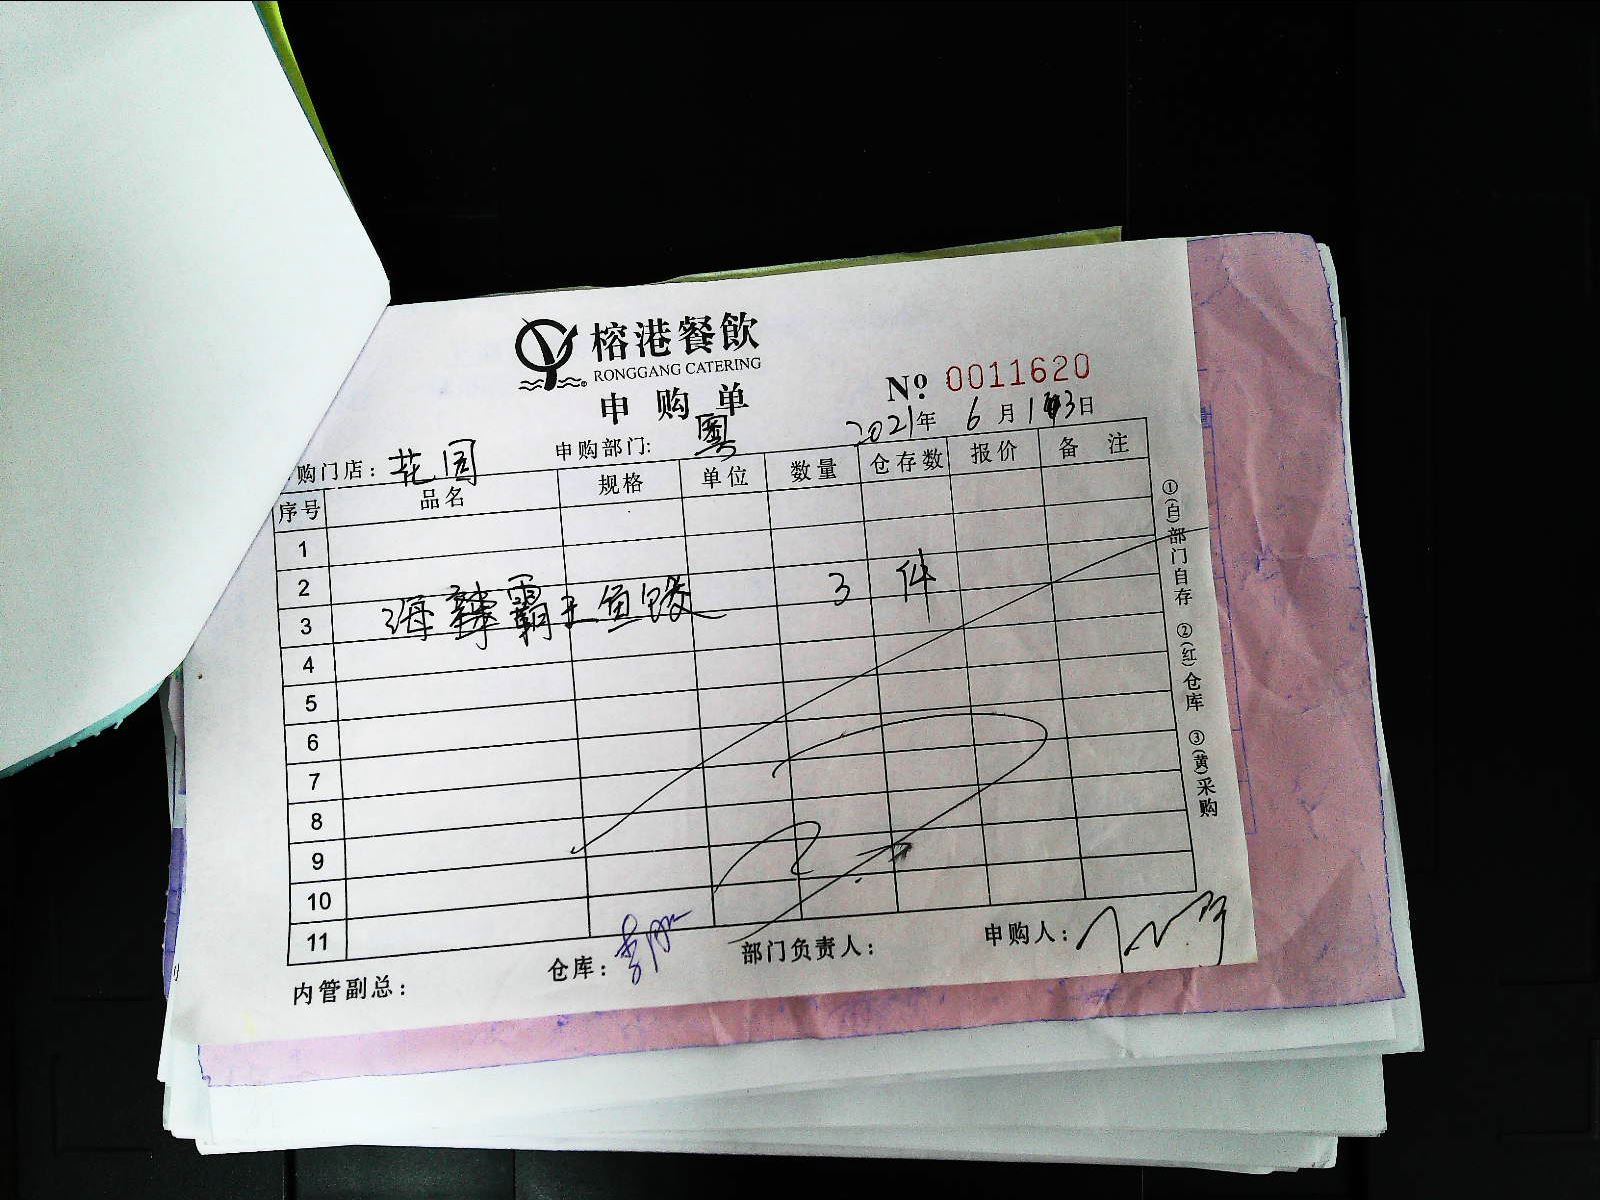 榕港餐飲
RONGGANG CATERING
申购单
No. 0011620
2021年 6月 13日
购门店：花园 申购部门：粤
序号 品名 规格 单位 数量 仓存数 报价 备注
1
2
3 海辣霸王鱼 3 件
4
5
6
7
8
9
10
11
内管副总： 仓库： 部门负责人： 申购人：
①(白)部门自存 ②(红)仓库 ③(黄)采购